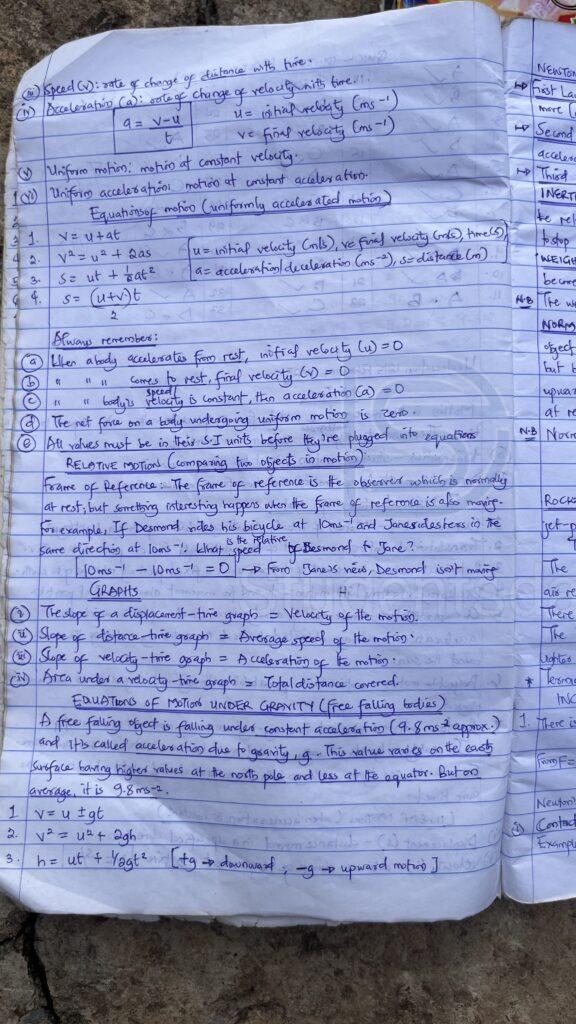 (iii) Speed (v): rate of change of distance with time.
(iv) Acceleration (a): rate of change of velocity with time.
a = v-u / t
u = initial velocity (ms⁻¹)
v = final velocity (ms⁻¹)
(v) Uniform motion: motion at constant velocity.
(vi) Uniform acceleration: motion at constant acceleration.
Equations of motion (uniformly accelerated motion)
1. v = u + at
2. v² = u² + 2as
3. s = ut + ½at²
4. s = (u+v)t / 2
[u = initial velocity (m/s), v = final velocity (m/s), time (s),
a = acceleration/deceleration (ms⁻²), s = distance (m)
Always remember:
(a) When a body accelerates from rest, initial velocity (u) = 0
(b) " " " comes to rest, final velocity (v) = 0
(c) " " body's speed/velocity is constant, then acceleration (a) = 0
(d) The net force on a body undergoing uniform motion is zero.
(e) All values must be in their S.I units before they're plugged into equations
RELATIVE MOTION (comparing two objects in motion)
Frame of Reference: The frame of reference is the observer which is normally
at rest, but something interesting happens when the frame of reference is also moving.
For example, If Desmond rides his bicycle at 10ms⁻¹ and Jane rides hers in the
same direction at 10ms⁻¹. What is the relative speed of Desmond to Jane?
10ms⁻¹ - 10ms⁻¹ = 0 → From Jane's view, Desmond isn't moving
GRAPHS
(i) The slope of a displacement-time graph = Velocity of the motion.
(ii) Slope of distance-time graph = Average speed of the motion.
(iii) Slope of velocity-time graph = Acceleration of the motion.
(iv) Area under a velocity-time graph = Total distance covered.
EQUATIONS OF MOTION UNDER GRAVITY (free falling bodies)
A free falling object is falling under constant acceleration (9.8ms⁻² approx.)
and it is called acceleration due to gravity, g. This value varies on the earth
surface having higher values at the north pole and less at the equator. But on
average, it is 9.8ms⁻².
1 v = u ± gt
2. v² = u² + 2gh
3. h = ut + ½gt² [+g → downward; -g → upward motion]
NEWTON
First La
more (
Second
accelera
Third
INERT
be rel
to stop
WEIGH
become
N.B The w
NORM
object
but b
upwar
at re
N.B Norm
ROCKE
jet-p
The
air re
There
The
* Termin
1. There is
From F =
Newton
(i) Contact
Example